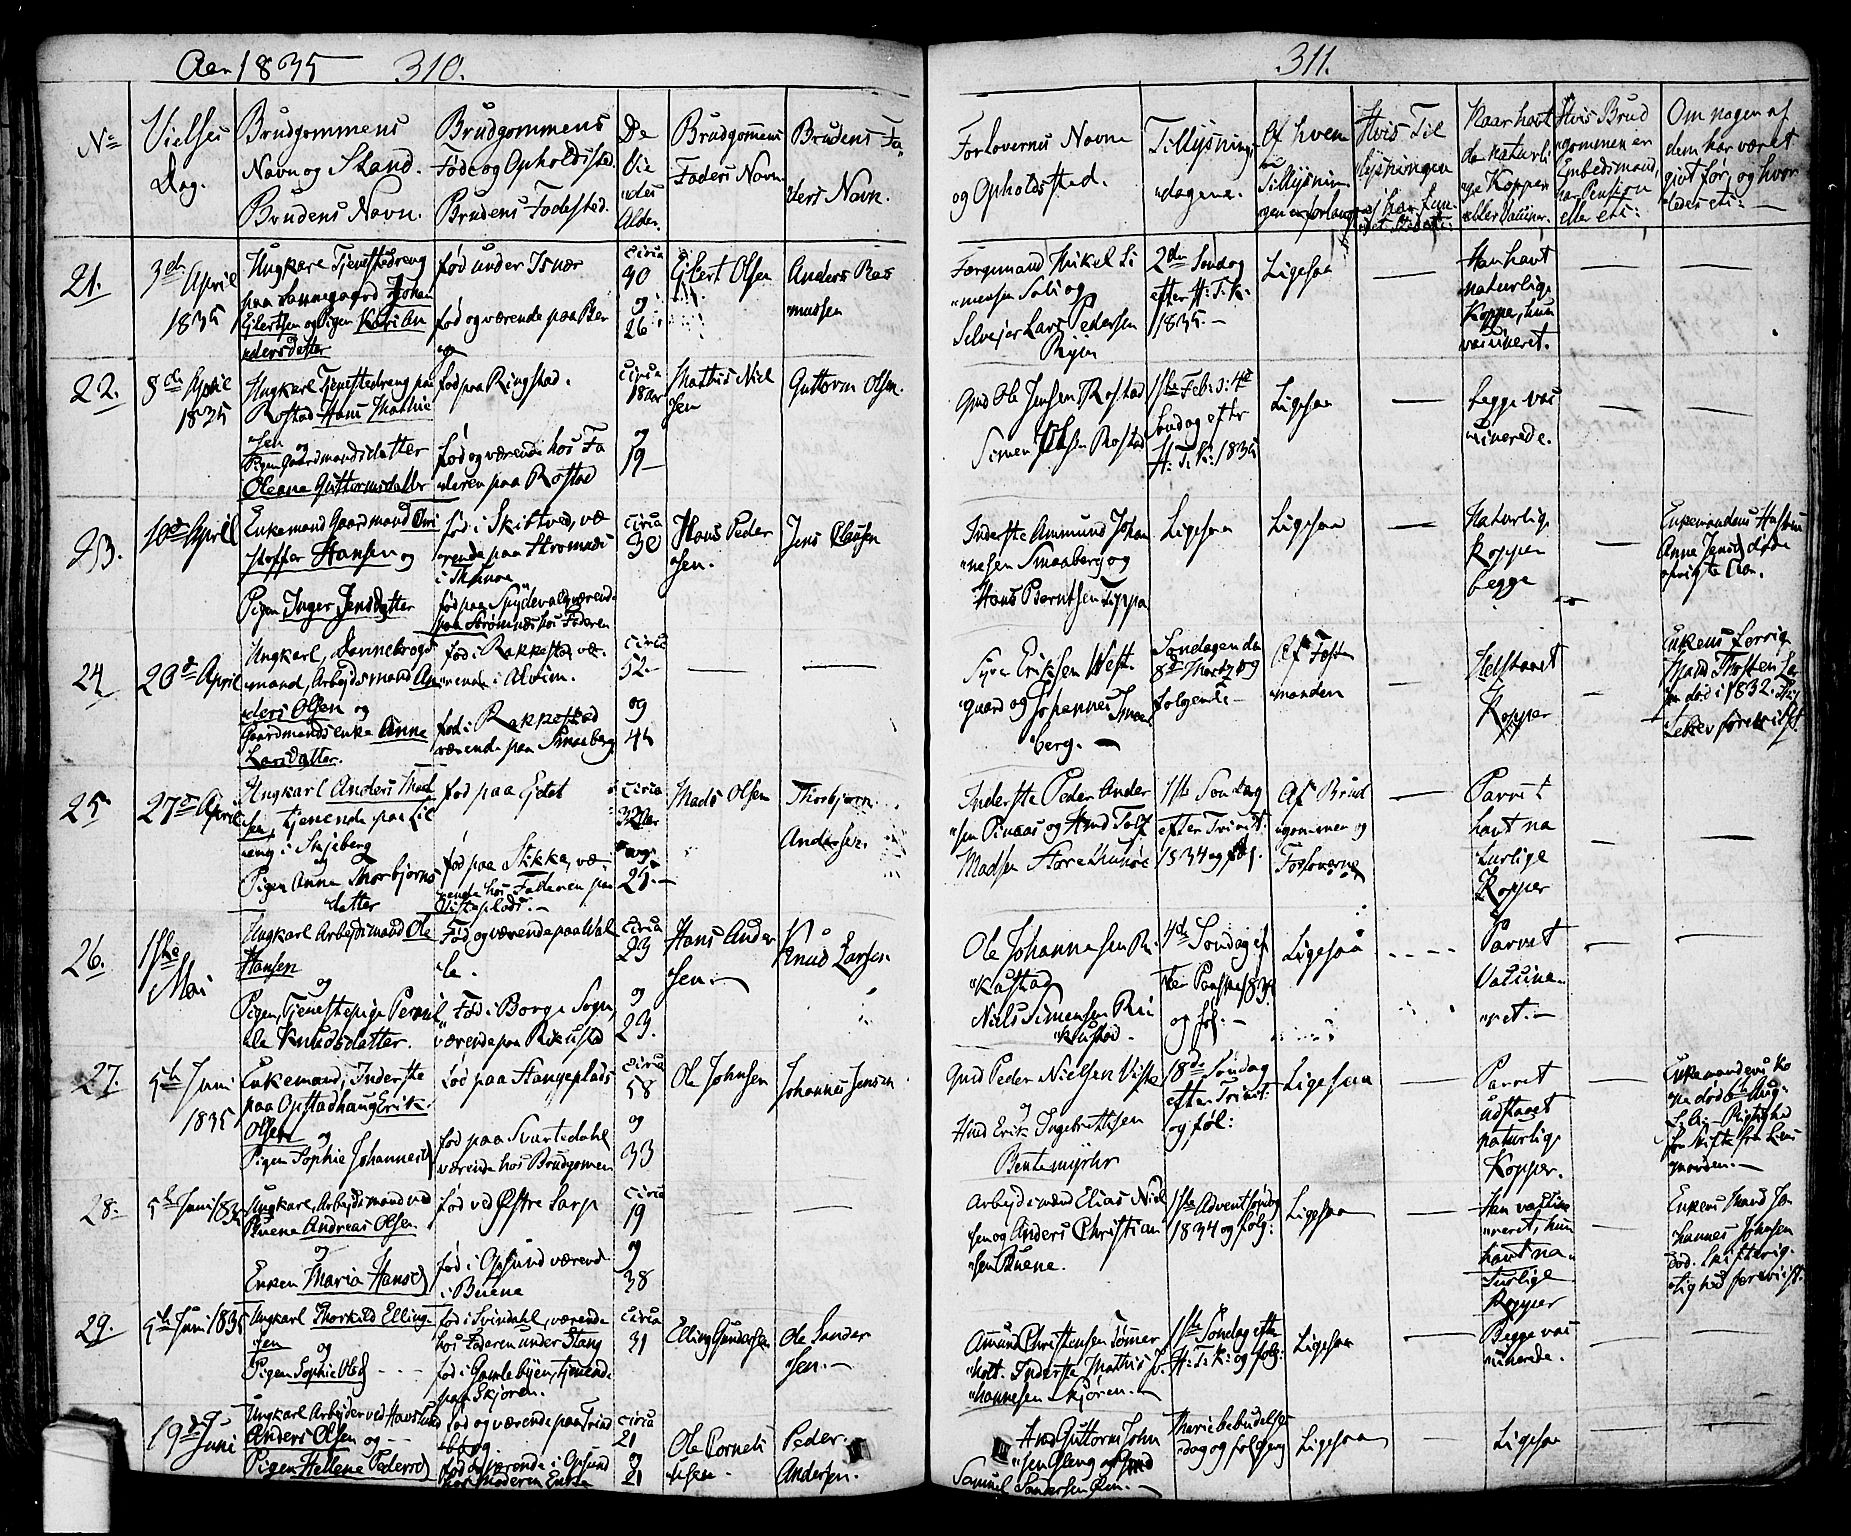 Aar 1835 310.
311.
No
Vielses
Dag.
Brudgommens
Navn og Stand.
Brudens Navn.
Brudgommens
Føde og Opholdssted.
Brudens Fødested.
De
Vie
"des
Alder.
Brudgomens
Faders Navn
Brudens Fa
ders Navn.
Forlovernes Navne
og Opholdssted.
Tillysnings
"dagene.
Af hvem
Tillysnin
gen er forlangt
Hvis Til
lysningen
Naar havt
de naturli
ge Kopper
eller Vaccine.
Hvis Brud
gommen er
Embedsmand,
har Pension
eller etc:
Om nogen af
dem har været
givt før, og hvor
ledes etc: —
21.
3de April
1835
Ungkarl Tjenestedreng
paa Sannegaard Johan
Ejlertsen og Pigen Kari An
dersdatter
fød under Isnær
fød og værende paa Ber
circa
30
og
26
Ejlert Olsen
Anders Ras
mussen
Færgemand Mikel Si
mensen Soli og
Selvejer Lars Pedersen
2den Søndag
efter H: T: K:
1835. —
Ligesaa
Han havt
naturlige
Kopper, hun
vaccineret.
22.
8de April
1835
Ungkarl Tjenestedreng paa
Rostad Hans Mathie
sen og
Pigen Gaardmandsdatter
Oleane Guttormsdatter
fød paa Ringstad.
fød og værende hos Fa
deren paa Rostad
circa
18 Aar
og
19 —
Mathis Niel
sen
Guttorm Olsen.
Gmd Ole Jensen Rostad
Simen Olsen Rostad
1ste Feb: 3: 4de
Søndag efter
H: T: K: 1835
Ligesaa
Begge vac
cinerede.
23.
10de April
Enkemand Gaardmand Chri
stoffer Hansen og
Pigen Inger Jensdatter
fød i Skibtved, væ
rende paa Strømnæs
i Thunøe
fød paa Spydevold værend
paa Strømnæs hos Faderen
circa
30
Hans Peder
sen.
Jens Clausen
Inderste Ammund Johan
nesen Smaaberg og
Hans Berntsen Toppa
Ligesaa
Ligesaa
Naturlige
Kopper
begge
Enkemandens Hustru
Anne Jensd døde
afvigte Aar.
24
20de April
Ungkarl, Dannebrogs
mand, Arbejdsmand An
ders Olsen og
Gaardmands enke Anne
Larsdatter.
fød i Rakkestad væ
rende i Alvim.
fød i Rakkestad
værende paa Smaaberg
circa
52 —
og
44
Syver Eriksen West
gaard og Johannes Smaa
berg. —
Søndagen den
8de Martz og
følgende —
Af Fæst
manden
Udstaaet
Kopper
Enkens forrige
Mand Thosten La
død i 1832. Skif
tebrev foreviist.
25
27de April
Ungkarl Anders Mad
sen, tjenende paa Lil
eng i Skjeberg
og
Pigen Anne Thorbjørns
datter
fød paa Ejdet
fød paa Stikke, væ
rende hos Faderen paa
Visteplads. —
circa
32 Aar
og
21. —
Mads Olsen
Thorbjørn
Andersen.
Inderste Peder Ander
sen Pinaas og Hmd Tolf
Madsen Store Thunøe
1ste Søndag
efter Trinit:
1834 og føl.
Af Brud
gommen og
Forloverne
Parret
havt na
turlige
Kopper
26.
1ste
Mai
Ungkarl Arbejdsmand Ole
Hansen
og
Pigen, Tjenestepige Pernil
le Knudsdatter.
Fød og værende paa Wal
le.
Fød i Borge Sogn,
værende paa Rikustad
circa
23
og
23.
Hans Ander
sen. —
Knud Larsen.
Ole Johannesen Ri
kustad
Niels Simensen Ri
kustad.
4de Søndag ef
ter Paaske 1835
og føl. —
Ligesaa
Parret
Vaccine
ret. —
27.
5te Juni
1835
Enkemand, Inderste
paa Opstadhaug Erik
Olsen og
Pigen Sophie Johannesd
fød paa Stangeplads
fød paa Svartedahl
værende hos Brudgomen
circa
58
og
33
Ole Johnsen
Johannes Jensen
Gmd Peder Nielsen Viste
og
Hmd Erik Ingebrettsen
Bentemyhr
18de Søndag
efter Trinit:
og føl:
Ligesaa
Parret
udstaaet
naturlige
Kopper.
Enkemandens Ko
ne død Aug:
28.
5te Juni 1835
Ungkarl, Arbejdsmand ved
Buene Andreas Olsen.
og
Enken Maria Hansd
fød ved Østre Sarp
fød i Opsund værend
i Buene
circa
19
og
38
Arbejdsmænd Elias Niel
sen og Anders Christian
sen Buene.
1ste Advent Søndag
1834 og føl:
Ligesaa
Han vaccine
ret, hun
havt na
turlige
Kopper
Enkens Mand Jo
hannes Johnsen
død. Skifterig
tighed foreviist.
29.
5te Juni 1835
Ungkarl Thorkild Elling
sen og
Pigen Sophie Olsd
fød i Svindahl, værende
hos Faderen under Stang
fød i Gamlebyen, tjenende
paa Skjøren.
circa
31
Elling Gundersen
Ole Sander
sen. —
Amund Christensen Tømmer
holt. Inderste Mathis Jo
hannesen Skjøren. —
1ste Søndag efter
H: T: K: og følg:
Ligesaa
Begge vac
cinerede.
19de
Juni
Ungkarl Arbejder ved Hafslund
Anders Olsen og
Pigen Hellene Pedersd
fød og værende paa Trond
berg
fød og værende i Opsund
hos Moderen Enke
circa
21
og
21
Ole Corneli
usen.
Peder
Andersen.
Hmd Guttorm John
sen Gleng og Gmd
Samuel Sandersen Øen. —
Mariæ bebudelses
dag og følgeng
Ligesaa
Ligesaa